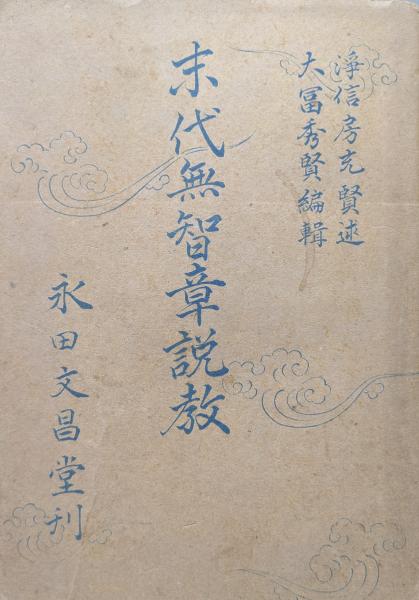 淨信房充賢述
大冨秀賢編輯
末代無智章説教
永田文昌堂刊